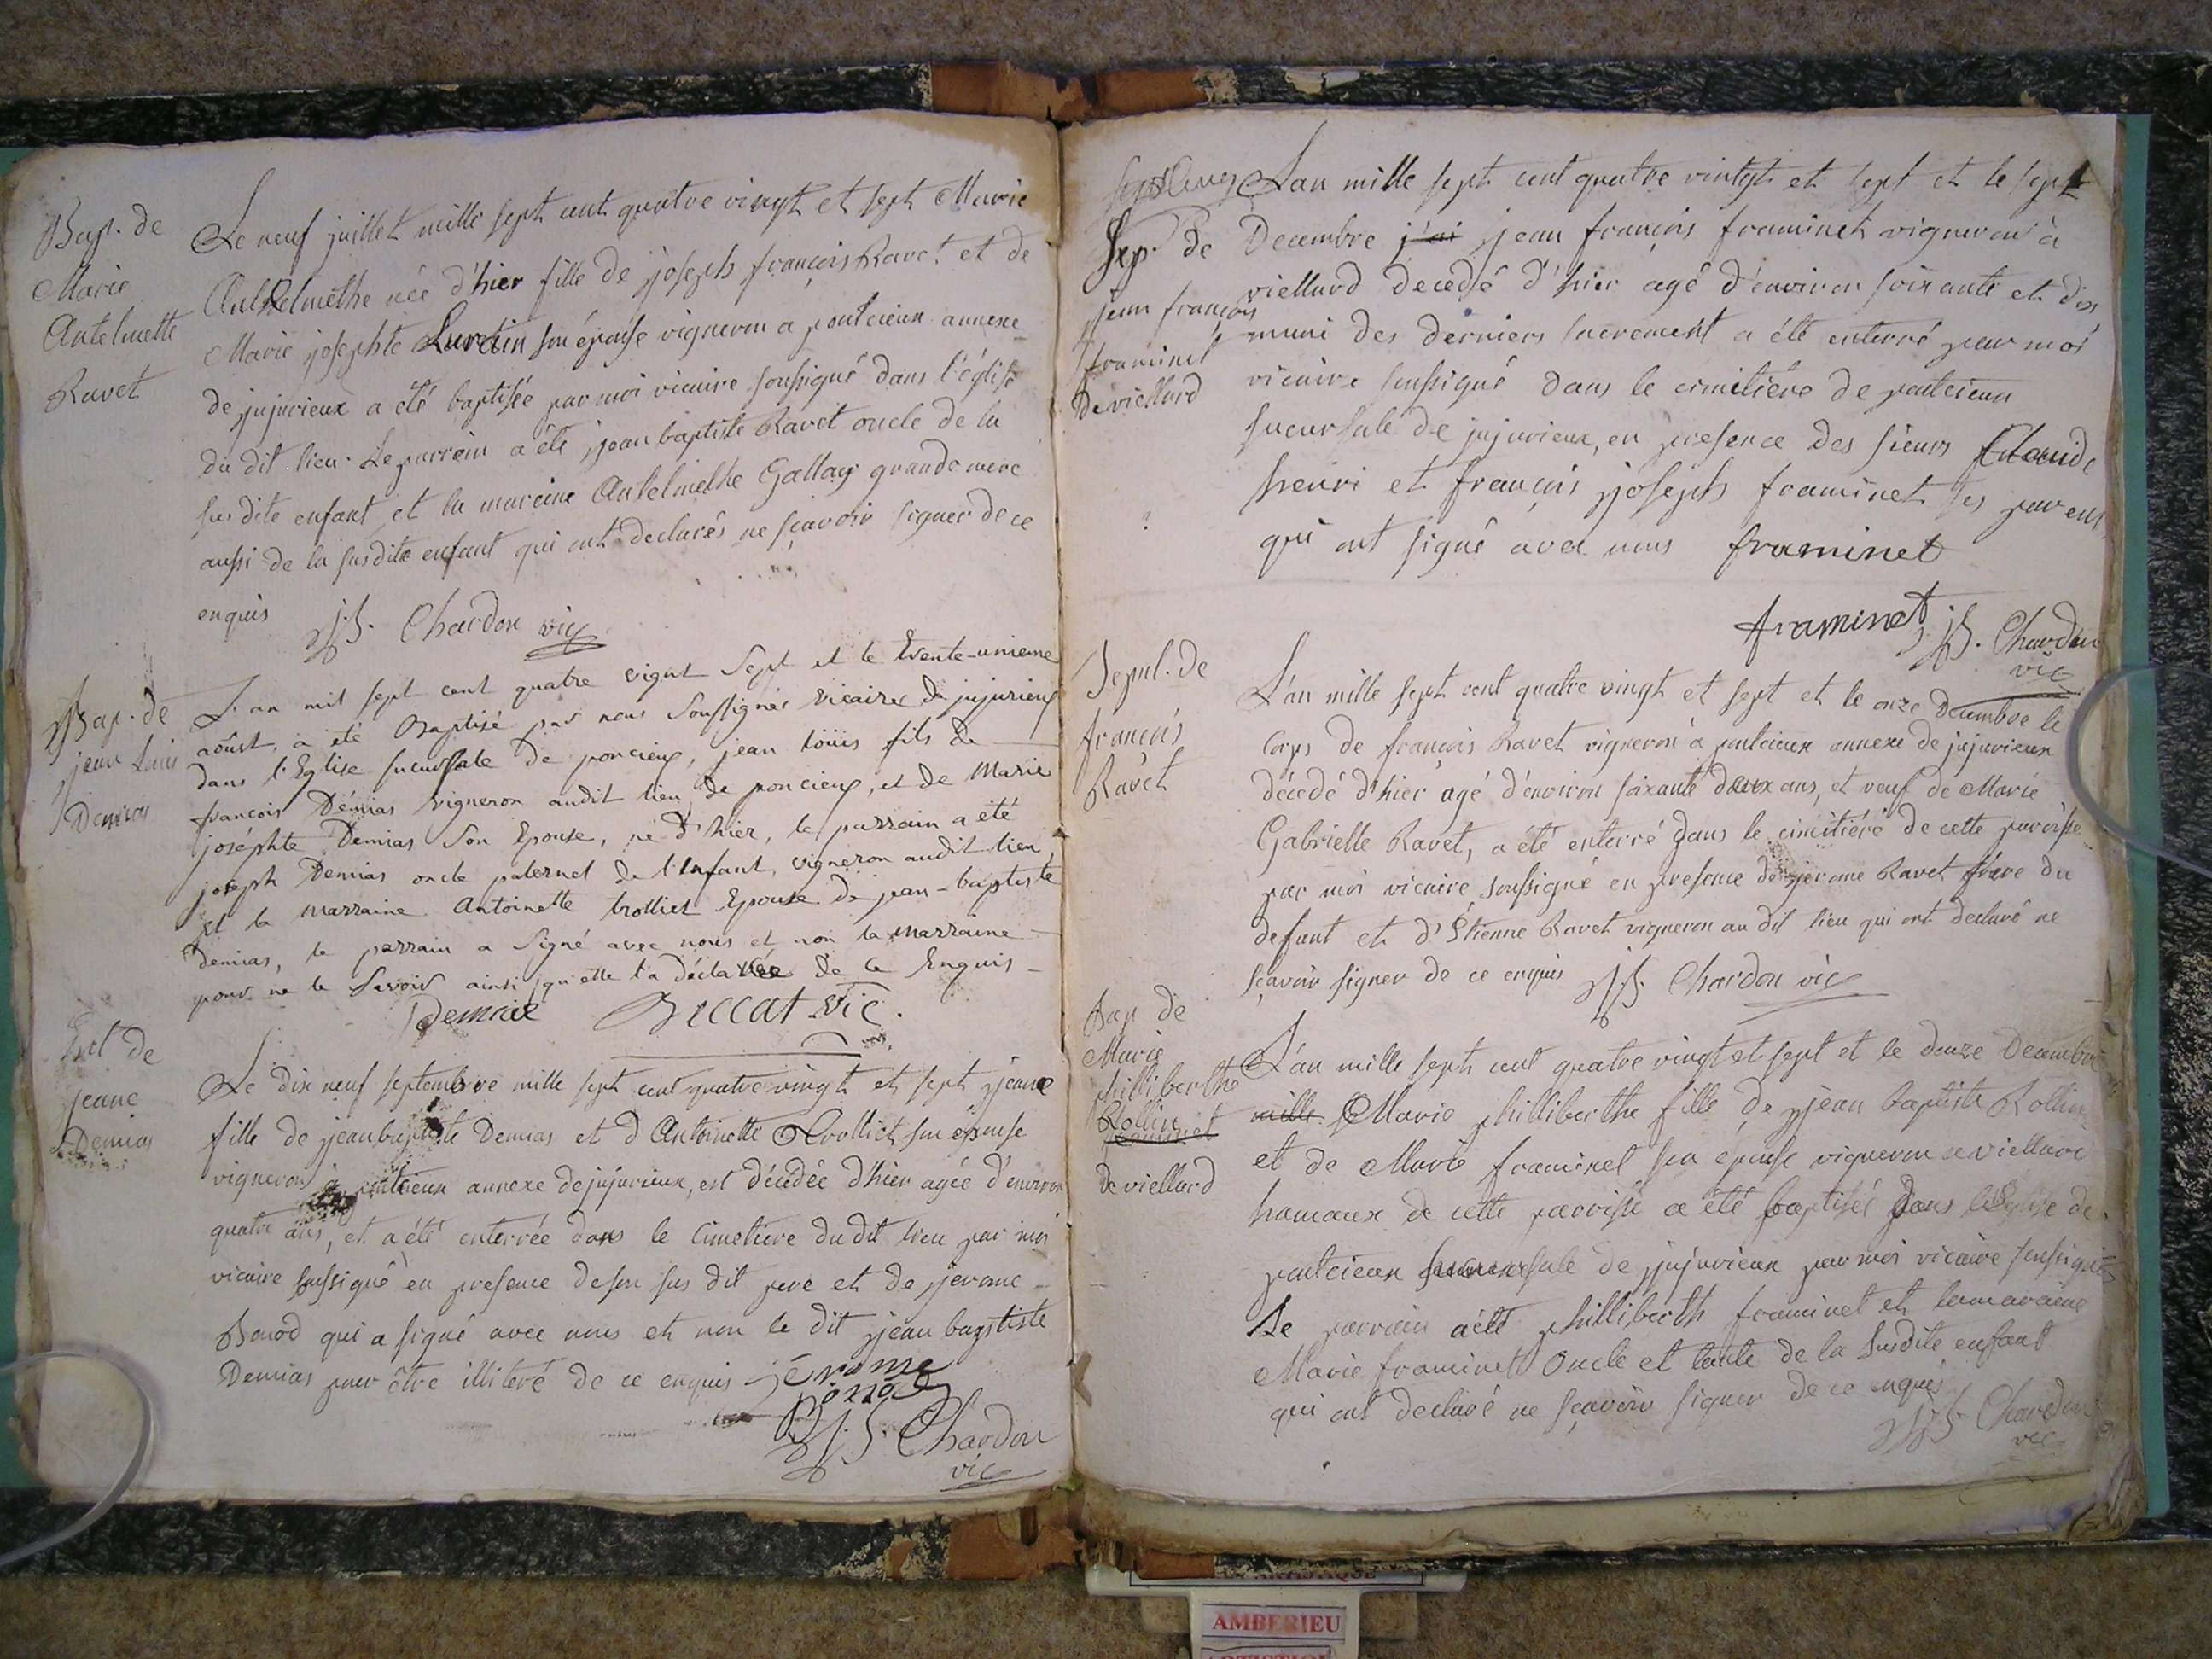 Bap. de
Marie
Antelmette
Ravet
Le neuf juillet mille sept cent quatre vingt et sept Marie
Anthelmethe née d'hier fille de joseph françois Ravet et de
Marie josephte Lurdin son épouse vigneron a pontcieux annexe
de jujurieux a été baptisée par moi vicaire soussigné dans l'église
du dit lieu. Le parrein a été jean baptiste Ravet oncle de la
susdite enfant et la mareine Antelmethe Gallay grande mere
aussi de la susdite enfant qui ont declarés ne sçavoir signer de ce
enquis j.S. Chardon vic
Bap. de
jean Louis
Demias
L'an mil sept cent quatre vignt sept et le trente-unieme
aoûst, a été Baptisé par nous soussignés vicaire de jujurieux
dans l'Eglise sucursale de poncieux, jean loüis fils de
françois Démias vigneron audit lieu de poncieux, et de Marie
joséphte Demias son Epouse, né d'hier, le parrain a été
joseph Demias oncle paternel de l'Enfant, vigneron audit lieu
et la marraine Antoinette trolliet Epouse de jean-baptiste
Demias, le parrain a signé avec nous et non la marraine
pour ne le savoir ainsi qu'elle l'a déclarée de ce Enquis
Demias Beccat vic.
de
jeane
Demias
Le dix neuf septembre mille sept cent quatre vingt et sept jeane
fille de jean baptiste Demias et d Antoinette Trolliet son épouse
vigneron à pontcieux annexe de jujurieux, est décédée d'hier agée d'environ
quatre ans, et a été enterrée dans le cimetiere du dit lieu par moi
vicaire soussigné en presence de son sus dit pere et de jerome
Bonod qui a signé avec nous et non le dit jean baptiste
Demias pour être illiteré de ce enquis jérome
Bonod
j.S. Chardon
vic
Sep. de
jean françois
framinet
De viellard
L'an mille sept cent quatre vintgt et sept et le sept
Decembre j'ai jean françois framinet vigneron à
viellard decedé d'hier agé d'environ soixante et dix
muni des derniers sacrement a été enterré par moi
vicaire soussigné dans le cimitiére de pontcieux
sucursale de jujurieux, en presence des sieurs Claude
henri et françois joseph framinet ses parens
qui ont signé avec nous framinet
framinet j.S. Chardon
vic
Sepul. de
françois
Ravet
L'an mille sept cent quatre vingt et sept et le onze Decembre le
corps de françois Ravet vigneron à pontcieux annexe de jujurieux
décédé d'hier agé d'environ soixante deux ans, et veuf de Marie
Gabrielle Ravet, a été enterré dans le cimitiére de cette paroisse
par moi vicaire soussigné en presence de jerome Ravet frere du
defunt et d'Étienne Ravet vigneron au dit lieu qui ont declaré ne
sçavoir signer de ce enquis j.S. Chardon vic
Bap de
Marie
philliberthe
Rollin
framinet
de viellard
L'an mille sept cent quatre vingt et sept et le douze Decembre
mille Marie philliberthe fille de jean baptiste Rollin
et de Marie framinet son épouse vigneron a viellard
hamaux de cette paroisse a été baptisée dans l'Eglise de
pontcieux sucursale de jujurieux par moi vicaire soussigné
Le parrain a été philliberth framinet et la maraine
Marie framinet oncle et tante de la susdite enfant
qui ont declaré ne sçavoir signer de ce enquis
j.S. Chardon
vic
AMBERIEU